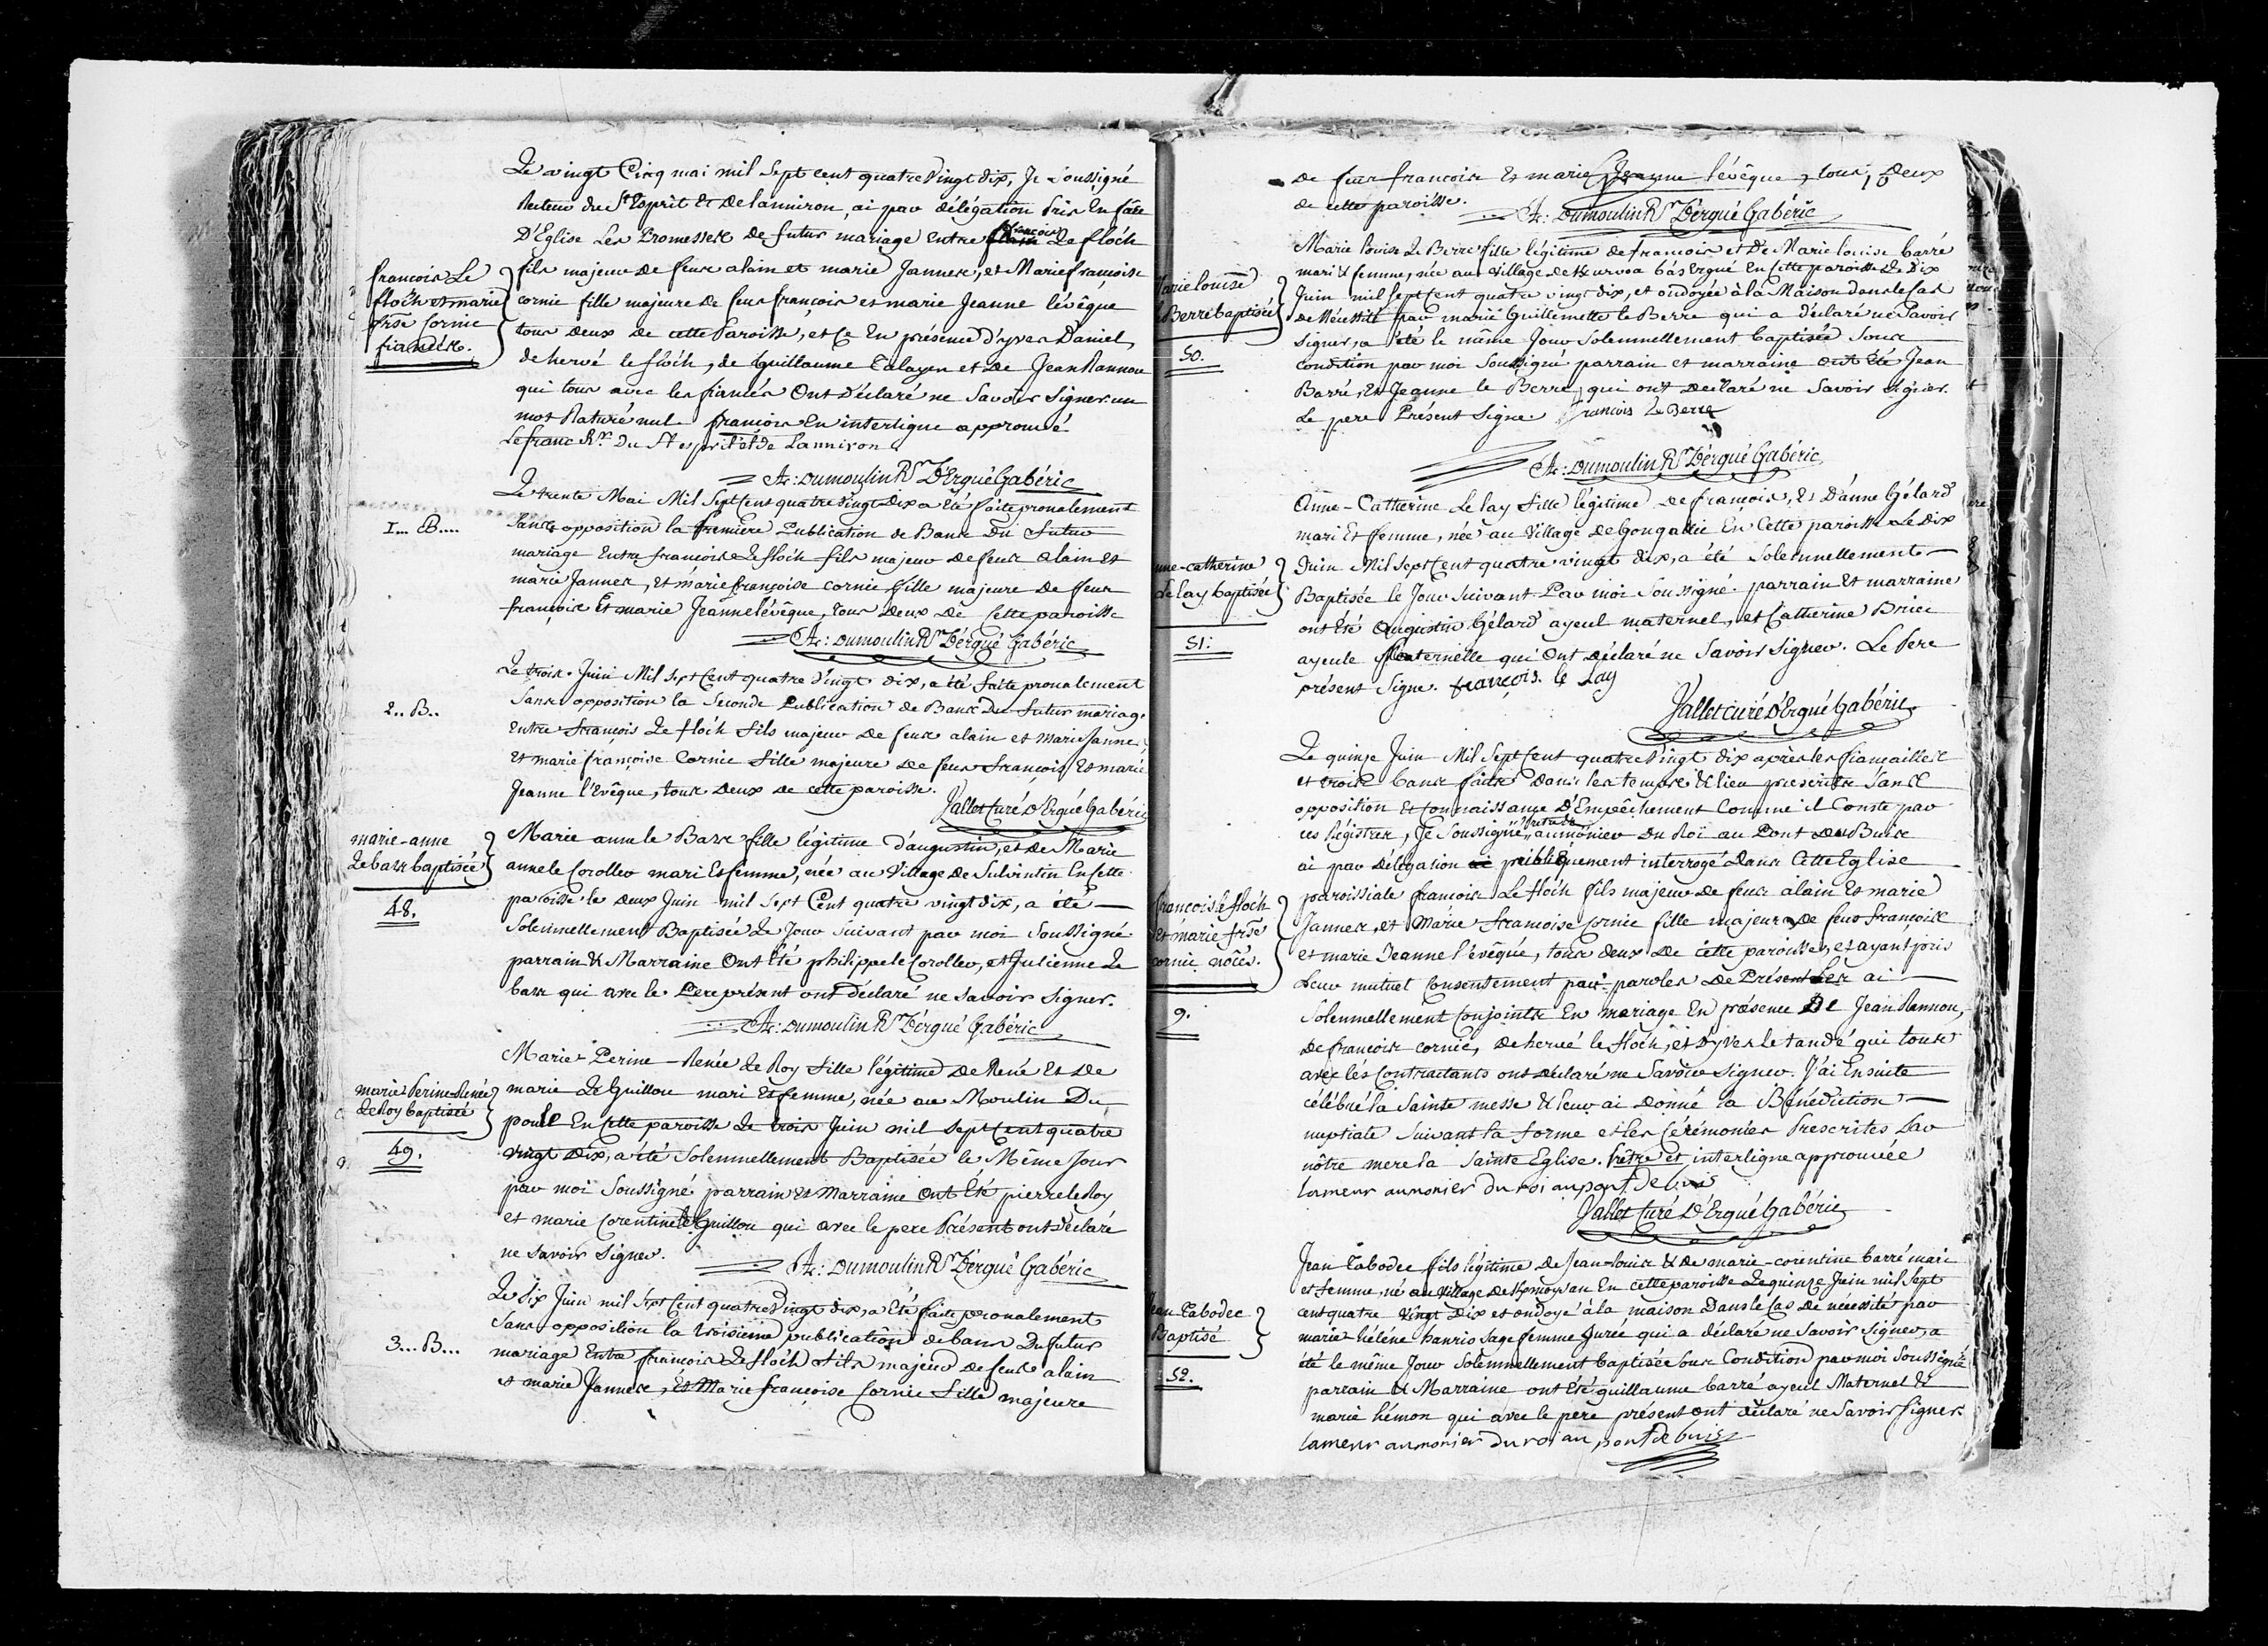 Le vingt Cinq mai mil Sept cent quatre Vingt dix, Je Soussigné
Recteur du St Esprit et de Lanniron, ai par délégation Pris En face
D'Eglise Les Promesses de futur mariage entre françois Le flóch
françois Le
flóch et marie
frse Cornic
fiancés.
fils majeur de feus alain et marie Jannes, et Marie françoise
cornic fille majeure de feus françois et marie Jeanne lévêque
tous deux de cette Paroisse, et ce En présence d'yves Daniel,
de hervé le flóch, de Guillaume Talayen et de Jean Rannou
qui tous avec les fiancés Ont Déclaré ne Savoir Signer. un
mot Raturé nul. françois En interligne approuvé
Lefranc Rr. du St esprit et de Lanniron
A: Dumoulin Rr D'Ergué Gabéric
1... B....
Le trente Mai Mil Sept Cent quatre Vingt Dix a Eté faite pronalement
Sans opposition la première Publication de Bans Du futur
mariage Entre françois Le flóch fils majeur de feus alain et
marie Jannes, et marie françoise cornic fille majeure de feus
françois Et marie Jeanne lévêque, tous deux de Cette paroisse
A: Dumoulin Rr D'érgué Gabéric
2.. B..
Le trois Juin Mil Sept Cent quatre Vingt dix, a été faite pronalement
Sans opposition la Seconde Publication de Bans Du futur mariage
Entre françois Le flóch fils majeur de feus alain et marie Jannes,
et marie françoise Cornic fille majeure de feus françois Et marie
Jeanne l'évêque, tous deux de cette paroisse.
Jallet Curé D'Ergué Gabéric
marie-anne
Le bars baptisée
48.
Marie anne le Bars fille légitime d'augustin, et de Marie
anne le Corolleur mari Et femme, née au Village de Sulvintin En Cette
paroisse le deux Juin mil Sept Cent quatre vingt dix, a été
Solemnellement Baptisée Le Jour Suivant par moi Soussigné
parrain & Marraine Ont Eté philippe le Corolleur, et Julienne Le
bars qui avec le Pere présent ont déclaré ne Savoir Signer.
A: Dumoulin Rr D'érgué Gabéric
marie Perine Renée
Le Roy baptisée
49.
Marie Perine Renée Le Roy fille légitime de René Et De
marie Le Guillou mari Et femme, née au Moulin Du
poull En Cette paroisse Le trois Juin mil Sept Cent quatre
vingt Dix, a été Solemnellement Baptisée le Même Jour
par moi Soussigné parrain Et Marraine Ont Eté pierre le Roy
et marie Corentine Le Guillou qui avec le pere Présent ont déclaré
ne Savoir Signer.
A: Dumoulin Rr D'érgué Gabéric
3... B...
Le Six Juin mil Sept Cent quatre Vingt dix, a Eté faite pronalement
Sans opposition la troisieme publication de bans Du futur
mariage Entre françois Le flóch fils majeur de feus alain
et marie Jannes, Et Marie françoise Cornic fille majeure
de feus françois Et marie Jeanne lévêque, tous deux
de cette paroisse.
A: Dumoulin Rr D'érgué Gabéric
Marie louise
Berre baptisée
50.
Marie louise Le Berre fille légitime de françois et de Marie louise barré
mari & femme, née au Village de bas Ergué En Cette paroisse Le Dix
Juin mil Sept Cent quatre vingt dix, et ondoyée à la Maison dans le Cas
de Nécessité par marie Guillemette le Berre qui a déclaré ne Savoir
Signer, a été le même Jour Solemnellement baptisée Sous
condition par moi Soussigné parrain et marraine Ont Eté Jean
Barré, Et Jeanne le Berre, qui ont déclaré ne Savoir Signer.
Le pere Présent Signe. françois Le Berre
A: Dumoulin Rr D'érgué Gabéric
nne-catherine
Le lay baptisée
51:
Anne-Catherine Le lay fille légitime de françois, Et D'anne Gélard
mari Et femme, née au Village de Gongallic En Cette paroisse Le Dix
Juin Mil Sept Cent quatre vingt dix, a été Solemnellement
Baptisée le Jour Suivant Par moi Soussigné. parrain et marraine
ont Eté Augustin Gélard ayeul maternel, et Catherine Brice
ayeule paternelle qui Ont déclaré ne Savoir Signer. Le Pere
présent Signe. françois le Lay
Jallet Curé D'Ergué Gabéric
Le quinze Juin Mil Sept Cent quatre Vingt dix après les fiançailles
et trois bans faits Dans les temps & lieu prescrits Sans
opposition & Connaissance D'Empêchement Comme il Conste par
ces Régistres, Je Soussigné prêtre aumônier Du Roi au Pont De Buis
ai par délégation publiquement interrogé dans Cette Eglise
francois le flóch
et marie frse
cornic nôces.
9.
paroissiale françois Le flóch fils majeur de feus alain Et marie
Jannes, et Marie françoise Cornic fille majeure de feus françois
et marie Jeanne l'évêque, tous deux de cette paroisse, et ayant pris
Leur mutuel Consentement par paroles de Présent Les ai
Solemnellement Conjoints En mariage En présence De Jean Rannou,
de françois cornic, de hervé le flóch, et d'yves le tandé qui tous
avec les Contractants ont déclaré ne Savoir Signer. J'ai Ensuite
célébré la Sainte messe & leur ai donné la Bénédiction
nuptiale Suivant la forme et les Cérémonies Prescrites Par
nôtre mere la Sainte Eglise. Prêtre et interligne approuvée
lameur aumonier du roi au pont de buis
Jallet Curé D'Ergué Gabéric
Jean Tabodec
Baptisé
52.
Jean Tabodec fils légitime de Jean-louis & de marie-corentine barré mari
et femme, né au Village de En cette paroisse Le quinze Juin mil Sept
cent quatre Vingt Dix et ondoyé à la maison Dans le Cas de nécessité par
marie héléne hanrio Sage femme Jurée qui a déclaré ne Savoir Signer, a
été le même Jour Solemnellement baptisée Sous Condition par moi Soussigné
parrain & Marraine ont Eté guillaume barré ayeul Maternel &
marie hémon qui avec le pere présent ont déclaré ne Savoir Signer
lameur aumonier du roi au pont de buis